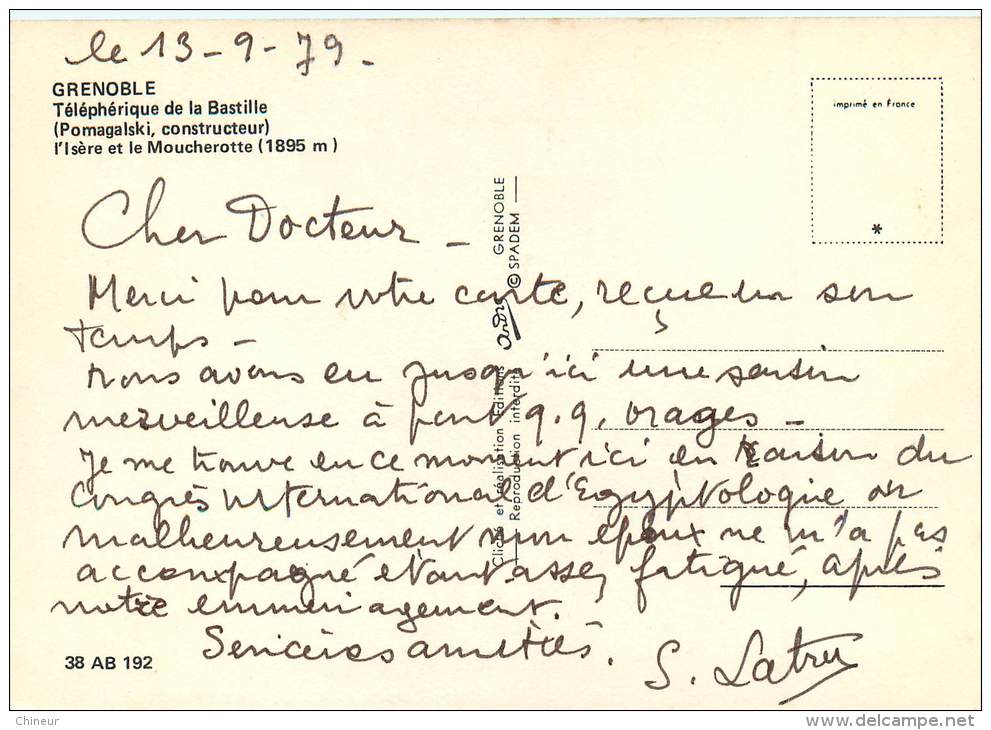 le 13-9-79-
GRENOBLE
Téléphérique de la Bastille
(Pomagalski, constructeur)
l'Isère et le Moucherotte (1895 m)
imprimé en France
*
Cher Docteur -
Merci pour votre carte, reçue en son
temps -
Nous avons eu jusqu'ici une saison
merveilleuse à part q.q. orages -
Je me trouve en ce moment ici en raison du
Congrès international d'Egyptologie
malheureusement mon époux ne m'a pas
accompagné étant assez fatigué, après
notre emménagement.
Sincères amitiés.
S.
38 AB 192
Cliché et réalisation Editions André GRENOBLE
Reproduction interdite © SPADEM
Chineur
www.delcampe.net